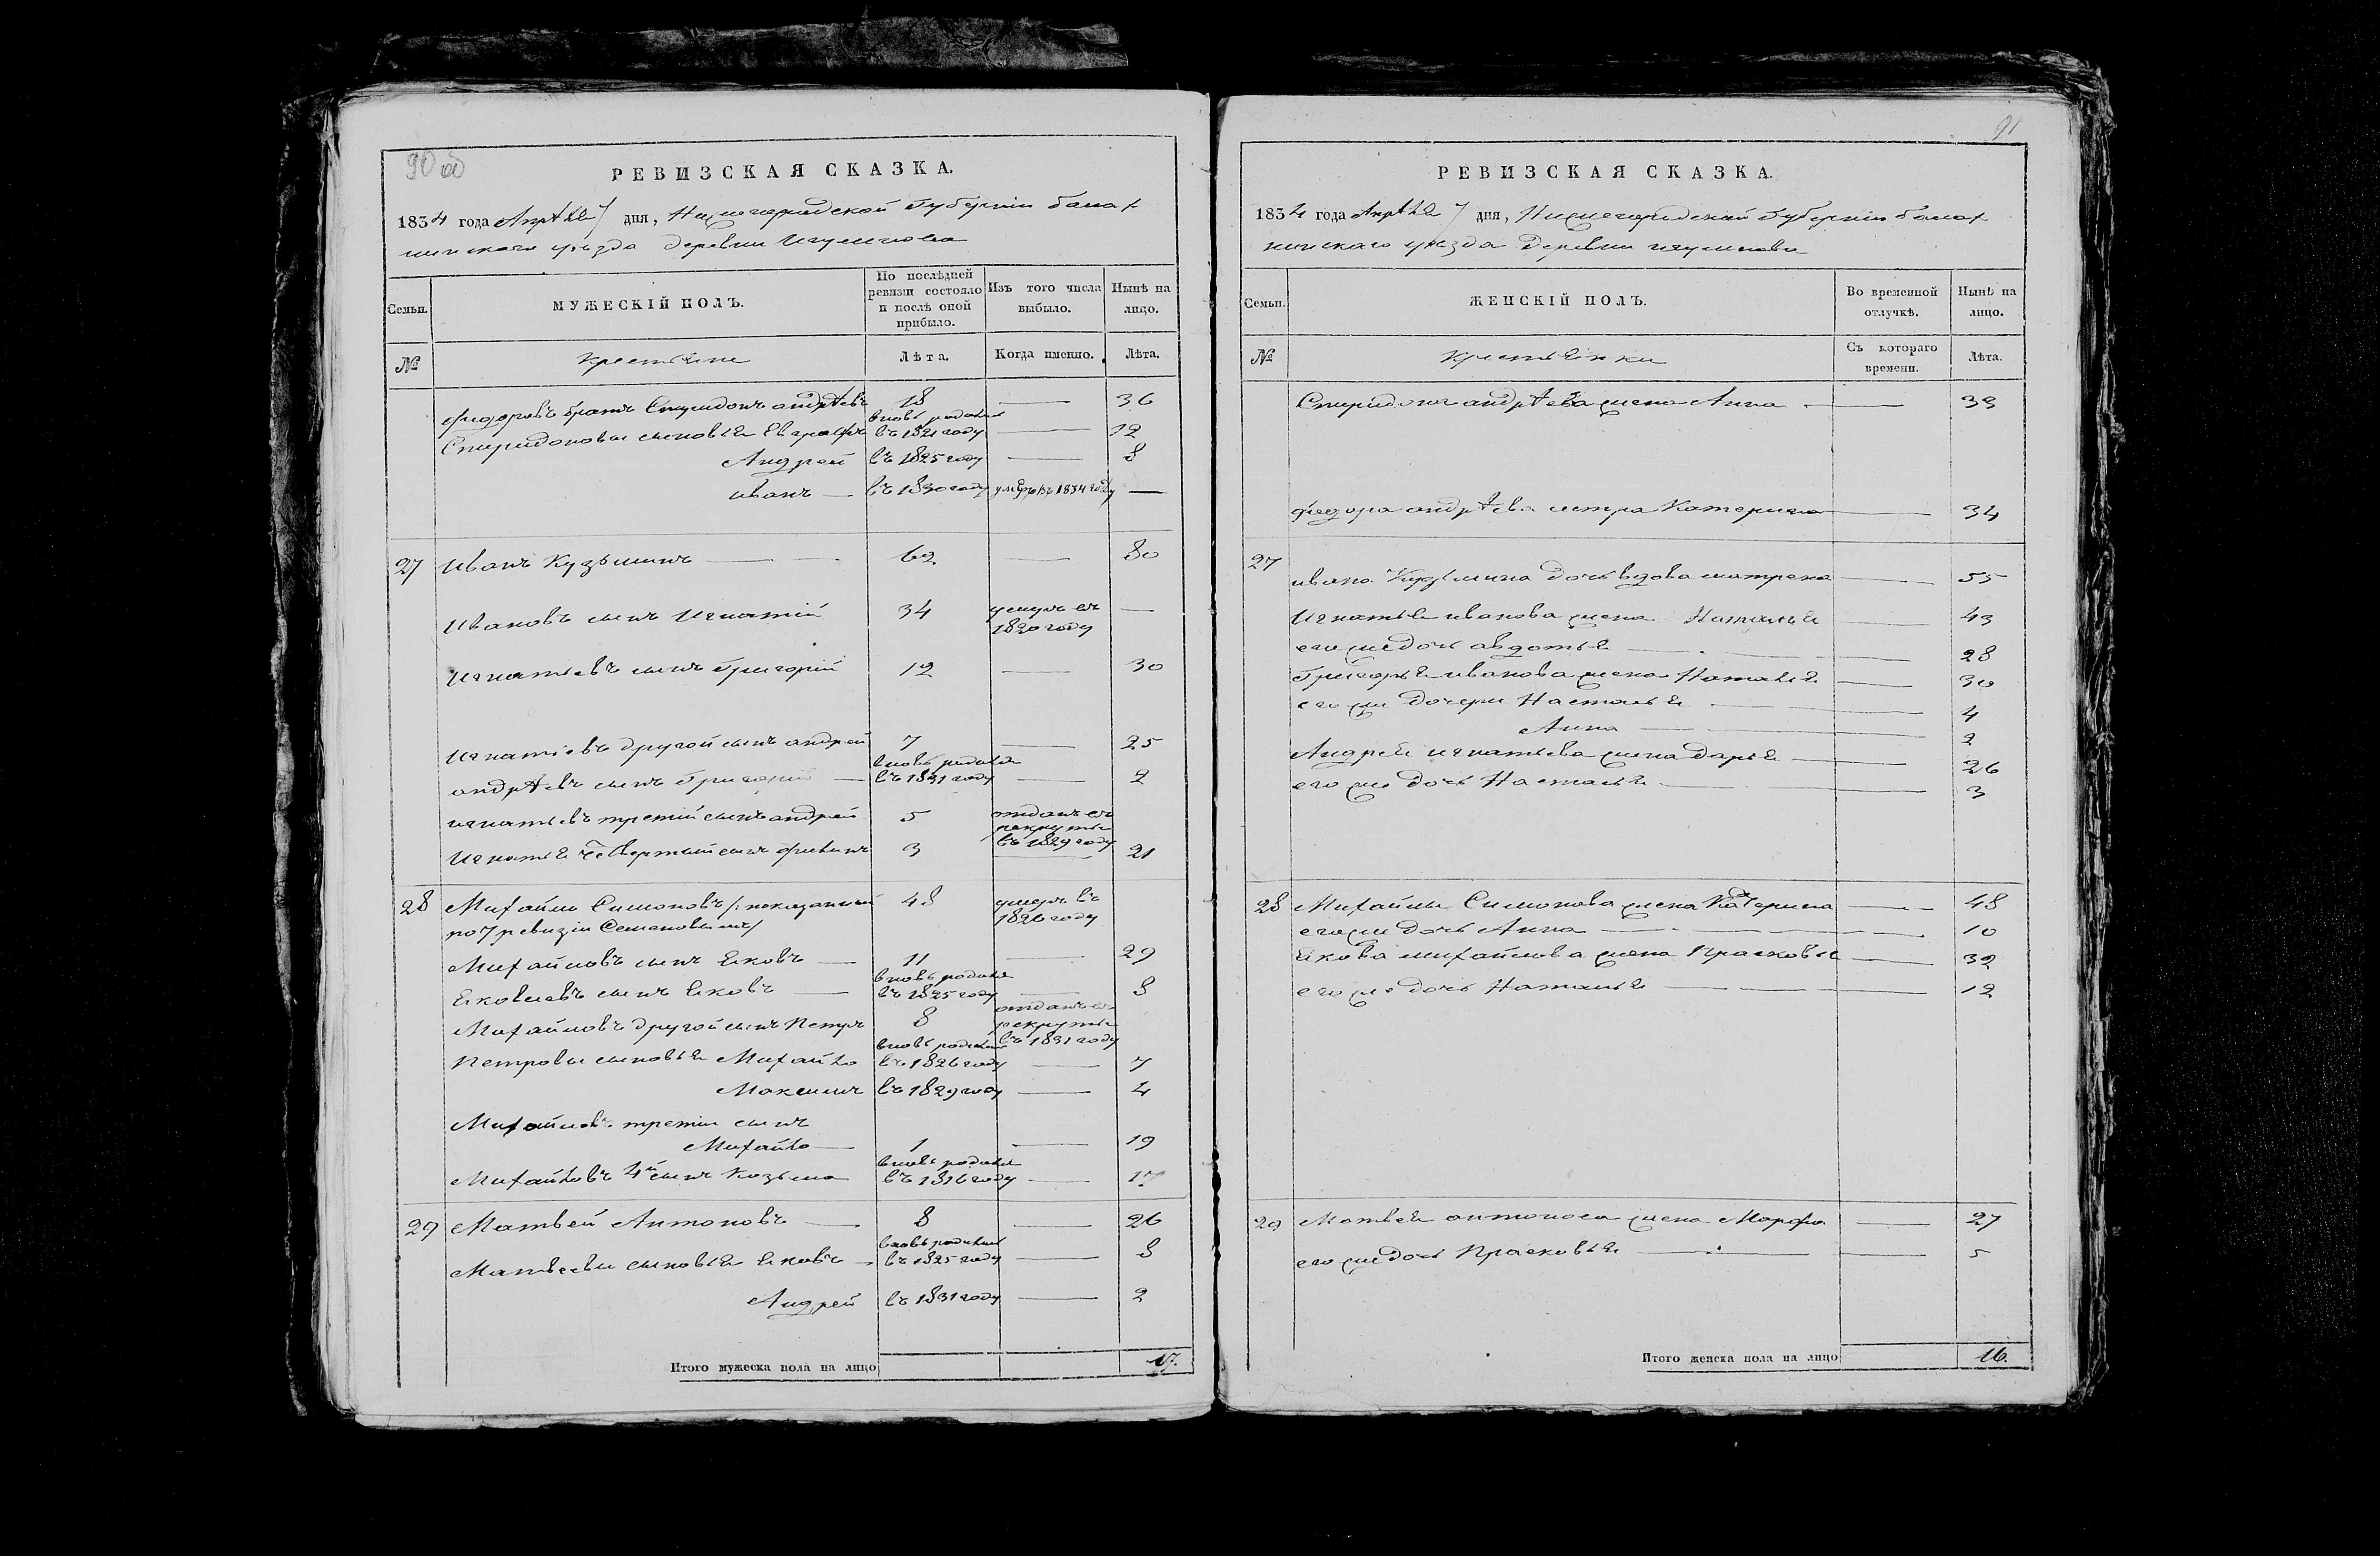 90 об
РЕВИЗСКАЯ СКАЗКА.
1834 года Апрѣля 7 дня, Нижегородской Губерніи балах
нинскаго уѣзда деревни Игумнова
Семьи.
МУЖЕСКІЙ ПОЛЪ.
По послѣдней ревизіи состояло и послѣ оной прибыло.
Изъ того числа выбыло.
Нынѣ на лицо.
№ Крестьяне Лѣта. Когда именно. Лѣта.
Федоровъ братъ Спиридонъ андрѣевъ 18 — 36
вновь родился
Спиридоновы сыновья Евграфъ въ 1821 году — 12
Андрей въ 1825 году — 8
иванъ — въ 1830 году умеръ въ 1834 году —
27 Иванъ Кузьминъ — 62 — 80
Ивановъ сынъ Игнатій 34 умеръ въ 1820 году —
Игнатьевъ сынъ Григорій 12 — 30
Игнатіевъ другой сынъ андрей 7 — 25
вновь родился
андрѣевъ сынъ Григорій — въ 1831 году — 2
игнатьевъ третій сынъ андрей 5 отданъ въ рекруты въ 1829 году
Игнатья четвертый сынъ филипъ 3 — 21
28 Михайла Симоновъ /: показанный 48 умеръ въ 1826 году
по 7 ревизіи Семеновымъ /
Михайловъ сынъ Яковъ — 11 — 29
вновь родился
Яковлевъ сынъ Яковъ — въ 1825 году — 8
Михайловъ другой сынъ Петръ 8 отданъ въ рекруты въ 1831 году
вновь родился
Петровы сыновья Михайло въ 1826 году — 7
Максимъ въ 1829 году — 4
Михайловъ третій сынъ
Михайло — 1 — 19
вновь родился
Михайловъ 4й сынъ Козьма въ 1816 году — 17
29 Матвей Антоновъ — 8 — 26
вновь родился
Матвеевы сыновья Яковъ — въ 1825 году — 8
Андрей въ 1831 году — 2
Итого мужеска пола на лицо 17.
91
РЕВИЗСКАЯ СКАЗКА.
1834 года Апрѣля 7 дня, Нижегородской Губерніи балах
нинскаго уѣзда деревни игумнова
Семьи.
ЖЕНСКІЙ ПОЛЪ.
Во временной отлучкѣ.
Нынѣ на лицо.
№ Крестьянки Съ котораго времени. Лѣта.
Спиридона андрѣева жена Анна — 33
федора андрѣева сестра Катерина — 34
27 ивана Кузьмина дочь вдова матрена — 55
Игнатья иванова жена Наталья — 43
его же дочь авдотья — 28
Григорья иванова жена Наталья — 30
его же дочери Настасья — 4
Анна — 2
Андрея игнатьева жена дарья — 26
его же дочь Настасья — 3
28 Михайлы Симонова жена Катерина — 48
его же дочь Анна — 10
Якова михайлова жена Прасковья — 32
его же дочь Наталья — 12
29 Матвея антонова жена Марфа — 27
его же дочь Прасковья — 5
Итого женска пола на лицо 16.